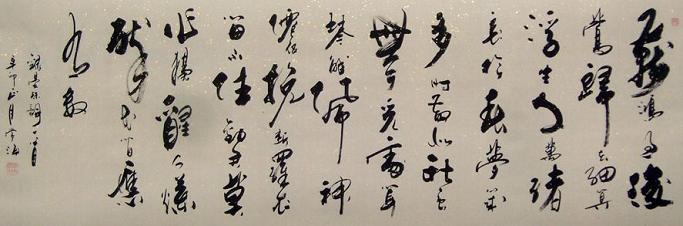 燕鴻過後
鶯歸去細算
浮生千萬緒
長於春夢幾
多時散似秋雲
無覓處聞
琴解佩神
僊侶挽斷羅衣
留不住勸君莫
作獨醒人爛
醉花間應
有數
錄晏殊詞一首
辛卯